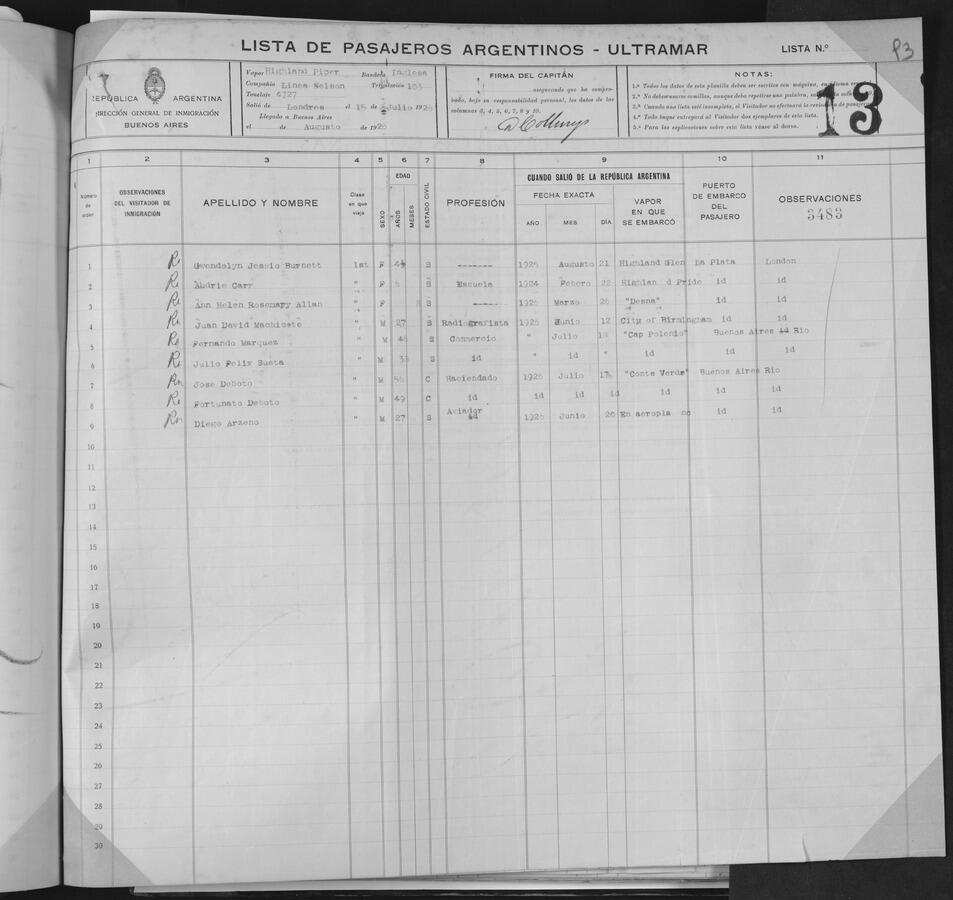 LISTA DE PASAJEROS ARGENTINOS - ULTRAMAR LISTA N.° 93
REPÚBLICA ARGENTINA
DIRECCIÓN GENERAL DE INMIGRACIÓN
BUENOS AIRES
Vapor Highland Piper Bandera Inglesa
Compañía Linea Nelson Tripulación 103
Tonelaje 6727
Salió de Londres el 15 de Julio 1926
Llegado a Buenos Aires
el de Augusto de 1926
FIRMA DEL CAPITÁN
asegurando que ha compro-
bado, bajo su responsabilidad personal, los datos de las
columnas 3, 4, 5, 6, 7, 8 y 10.
NOTAS:
1.ª Todos los datos de esta planilla deben ser escritos con máquina,
2.ª No deben usarse comillas, aunque deba repetirse una palabra,
3.ª Cuando una lista esté incompleta, el Visitador no efectuará la de pasajeros
4.ª Todo buque entregará al Visitador dos ejemplares de esta lista.
5.ª Para las explicaciones sobre esta lista véase al dorso.
13
1 2 3 4 5 6 7 8 9 10 11
Número de orden
OBSERVACIONES DEL VISITADOR DE INMIGRACIÓN
APELLIDO Y NOMBRE
Clase en que viaja
SEXO
EDAD
AÑOS
MESES
ESTADO CIVIL
PROFESIÓN
CUANDO SALIÓ DE LA REPÚBLICA ARGENTINA
FECHA EXACTA
AÑO MES DÍA
VAPOR EN QUE SE EMBARCÓ
PUERTO DE EMBARCO DEL PASAJERO
OBSERVACIONES
3483
1 Gwendolyn Jessie Burnett 1st F S ------- 1925 Augusto 21 Highland Glen La Plata London
2 Audrie Carr " F S Escuela 1924 Febero 22 Highlan d Pride id id
3 Ann Helen Rosemary Allan " F S ------- 1926 Marzo 26 "Desna" id id
4 Juan David Machicote " M 27 S Radiografista 1925 Junio 12 City of Birmingham id id
5 Fernando Marquez " M 46 S Commercio " Julio "Cap Polonio" Buenos Aires id Rio
6 Julio Felix Sueta " M S id " id " id id id
7 Jose Deboto " M 56 C Haciendado 1926 Julio "Conte Verde" Buenos Aires Rio
8 Fortunato Deboto " M 49 C id id id id id id id
9 Diego Arzeno " M 27 S Aviador 1926 Junio 20 En aeropla no id id
10
11
12
13
14
15
16
17
18
19
20
21
22
23
24
25
26
27
28
29
30